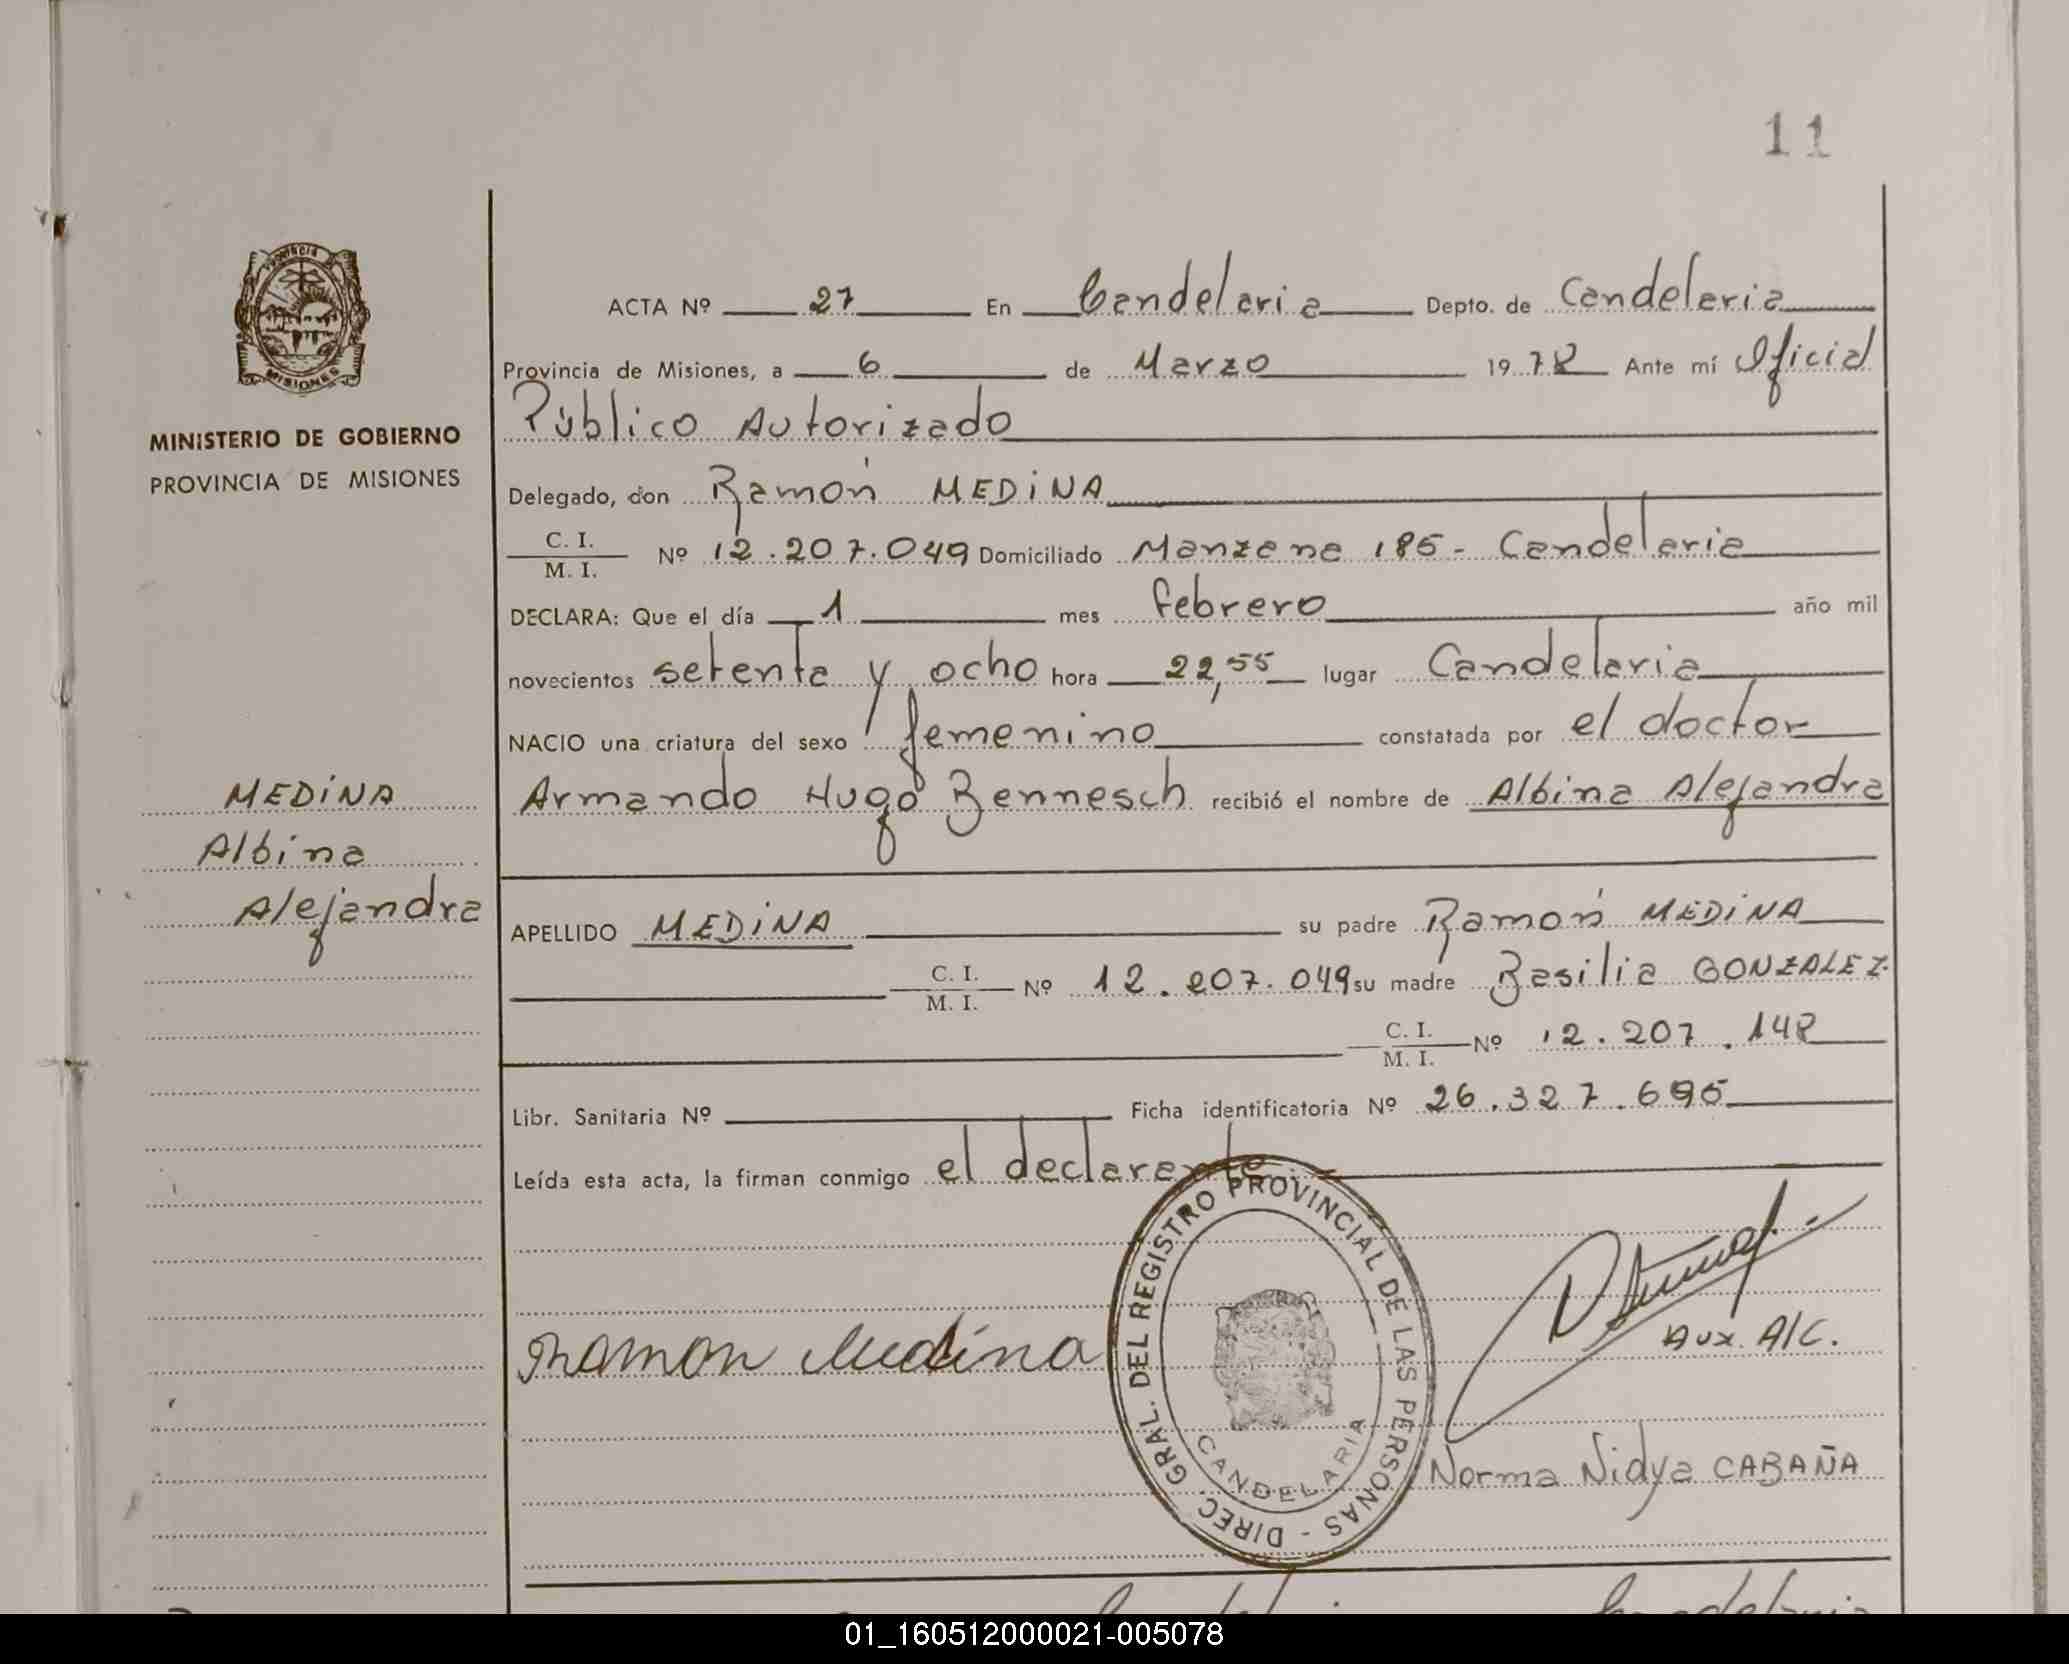 11
PROVINCIA
MISIONES
MINISTERIO DE GOBIERNO
PROVINCIA DE MISIONES
MEDINA
Albina
Alejandra
ACTA Nº 27 En Candelaria Depto. de Candelaria
Provincia de Misiones, a 6 de Marzo 1978 Ante mí Oficial
Público Autorizado
Delegado, don Ramón MEDINA
C. I.
M. I. Nº 12.207.049 Domiciliado Manzana 185 - Candelaria
DECLARA: Que el día 1 mes febrero año mil
novecientos setenta y ocho hora 22,55 lugar Candelaria
NACIO una criatura del sexo femenino constatada por el doctor
Armando Hugo Bennesch recibió el nombre de Albina Alejandra
APELLIDO MEDINA su padre Ramón MEDINA
C. I.
M. I. Nº 12.207.049 su madre Basilia GONZALEZ
C. I.
M. I. Nº 12.207.148
Libr. Sanitaria Nº Ficha identificatoria Nº 26.327.695
Leída esta acta, la firman conmigo el declarante
DIREC. GRAL. DEL REGISTRO PROVINCIAL DE LAS PERSONAS -
CANDELARIA
Ramon Medina
Aux. A/C.
Norma Nidya CABAÑA
01_160512000021-005078